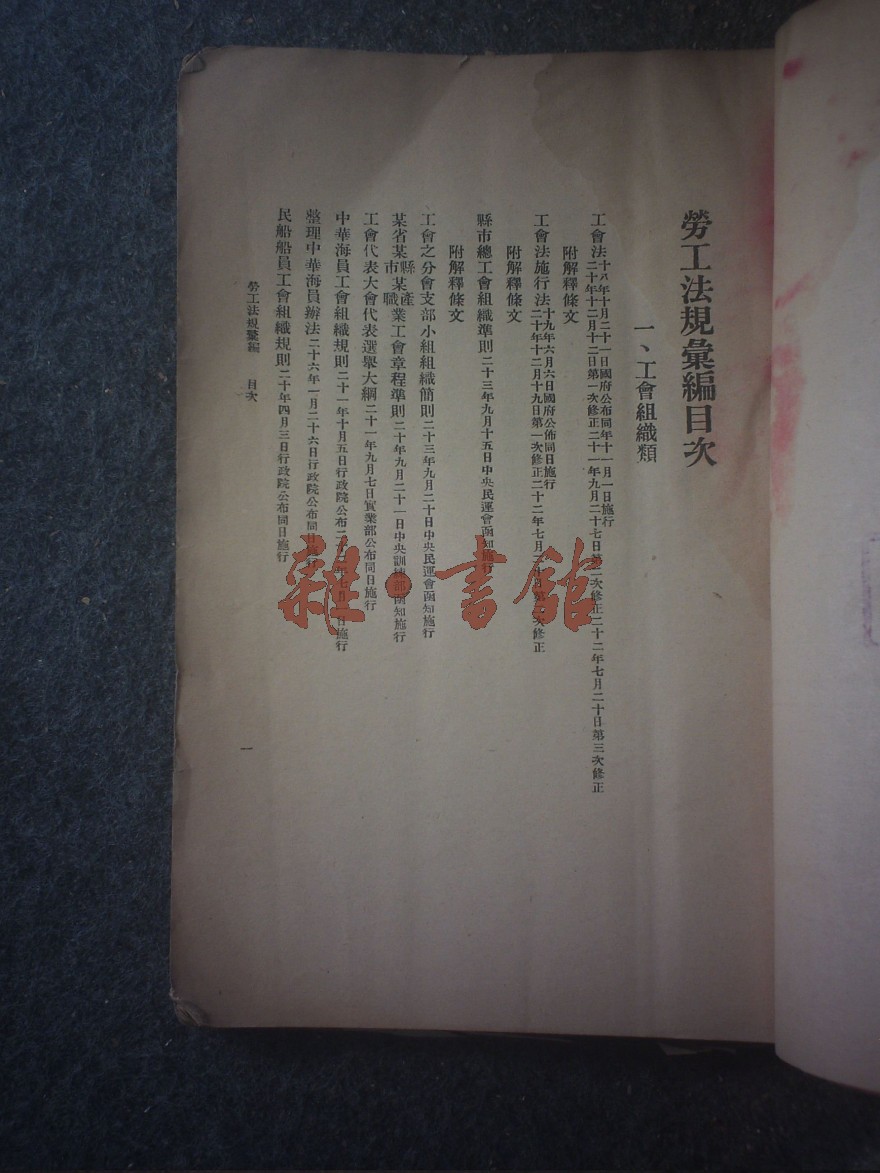 勞工法規彙編目次
一、工會組織類
工會法十八年十月二十一日國府公布同年十一月一日施行
二十年十二月十二日第一次修正二十一年九月二十七日第二次修正二十二年七月二十日第三次修正
附解釋條文
工會法施行法十九年六月六日國府公佈同日施行
二十年十二月十九日第一次修正二十二年七月 次修正
附解釋條文
縣市總工會組織準則二十三年九月十五日中央民運會函知施行
附解釋條文
工會之分會支部小組組織簡則二十三年九月二十日中央民運會函知施行
某省某縣市某產職業工會章程準則二十年九月二十一日中央訓練部函知施行
工會代表大會代表選舉大綱二十一年九月七日實業部公布同日施行
中華海員工會組織規則二十一年十月五日行政院公布 施行
整理中華海員辦法二十六年一月二十六日行政院公布同日施行
民船船員工會組織規則二十年四月三日行政院公布同日施行
勞工法規彙編 目次
一
雜·書館